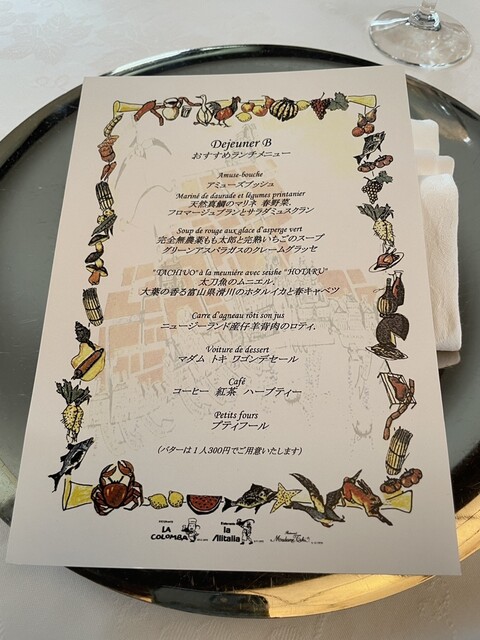 Dejeuner B
おすすめランチメニュー
Amuse-bouche
アミューズブッシュ
Mariné de daurade et légumes printanier
天然真鯛のマリネ 春野菜、
フロマージュブランとサラダミュスクラン
Soup de rouge aux glace d'asperge vert
完全無農薬もも太郎と完熟いちごのスープ
グリーンアスパラガスのクレームグラッセ
"TACHIUO" à la meunière avec seishe "HOTARU"
太刀魚のムニエル、
大葉の香る富山県滑川のホタルイカと春キャベツ
Carre d'agneau rôti son jus
ニュージーランド産仔羊背肉のロティ、
Voiture de dessert
マダム トキ ワゴンデセール
Café
コーヒー 紅茶 ハーブティー
Petits fours
プティフール
(バターは1人300円でご用意いたします)
LA COLOMBA
la Alitalia